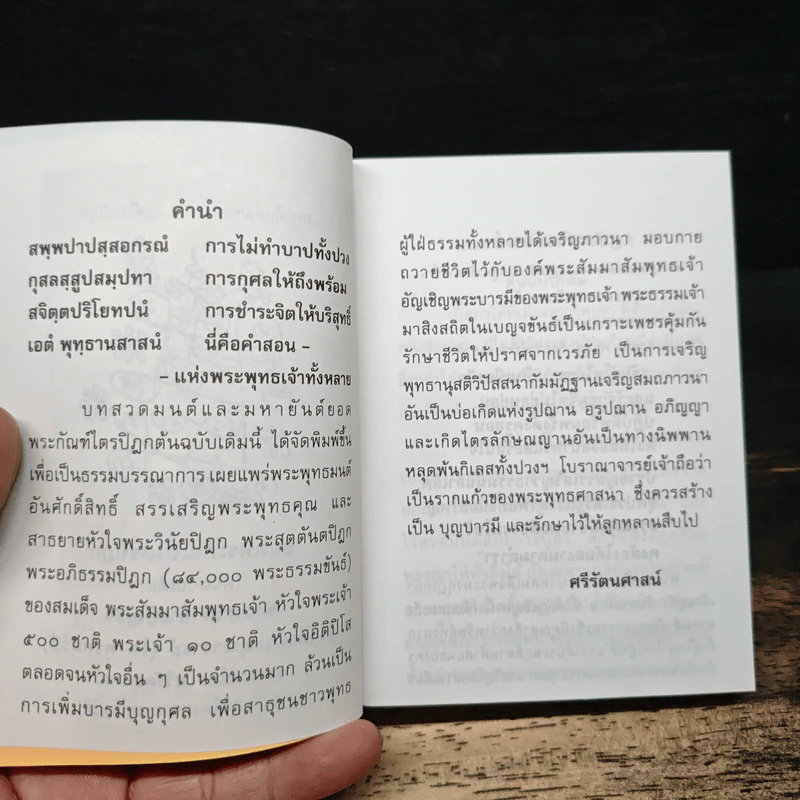 คำนำ
สพฺพปาปสฺสอกรณํ การไม่ทำบาปทั้งปวง
กุสลสฺสูปสมฺปทา การกุศลให้ถึงพร้อม
สจิตฺตปริโยทปนํ การชำระจิตให้บริสุทธิ์
เอตํ พุทฺธานสาสนํ นี่คือคำสอน –
– แห่งพระพุทธเจ้าทั้งหลาย
บทสวดมนต์และมหายันต์ยอด
พระกัณฑ์ไตรปิฎกต้นฉบับเดิมนี้ ได้จัดพิมพ์ขึ้น
เพื่อเป็นธรรมบรรณาการ เผยแพร่พระพุทธมนต์
อันศักดิ์สิทธิ์ สรรเสริญพระพุทธคุณ และ
สาธยายหัวใจพระวินัยปิฎก พระสุตตันตปิฎก
พระอภิธรรมปิฎก (๘๔,๐๐๐ พระธรรมขันธ์)
ของสมเด็จ พระสัมมาสัมพุทธเจ้า หัวใจพระเจ้า
๕๐๐ ชาติ พระเจ้า ๑๐ ชาติ หัวใจอิติปิโส
ตลอดจนหัวใจอื่น ๆ เป็นจำนวนมาก ล้วนเป็น
การเพิ่มบารมีบุญกุศล เพื่อสาธุชนชาวพุทธ
ผู้ใฝ่ธรรมทั้งหลายได้เจริญภาวนา มอบกาย
ถวายชีวิตไว้กับองค์พระสัมมาสัมพุทธเจ้า
อัญเชิญพระบารมีของพระพุทธเจ้า พระธรรมเจ้า
มาสิงสถิตในเบญจขันธ์เป็นเกราะเพชรคุ้มกัน
รักษาชีวิตให้ปราศจากเวรภัย เป็นการเจริญ
พุทธานุสติวิปัสสนากัมมัฏฐานเจริญสมถภาวนา
อันเป็นบ่อเกิดแห่งรูปฌาน อรูปฌาน อภิญญา
และเกิดไตรลักษณญานอันเป็นทางนิพพาน
หลุดพ้นกิเลสทั้งปวงฯ โบราณาจารย์เจ้าถือว่า
เป็นรากแก้วของพระพุทธศาสนา ซึ่งควรสร้าง
เป็น บุญบารมี และรักษาไว้ให้ลูกหลานสืบไป
ศรีรัตนศาสน์